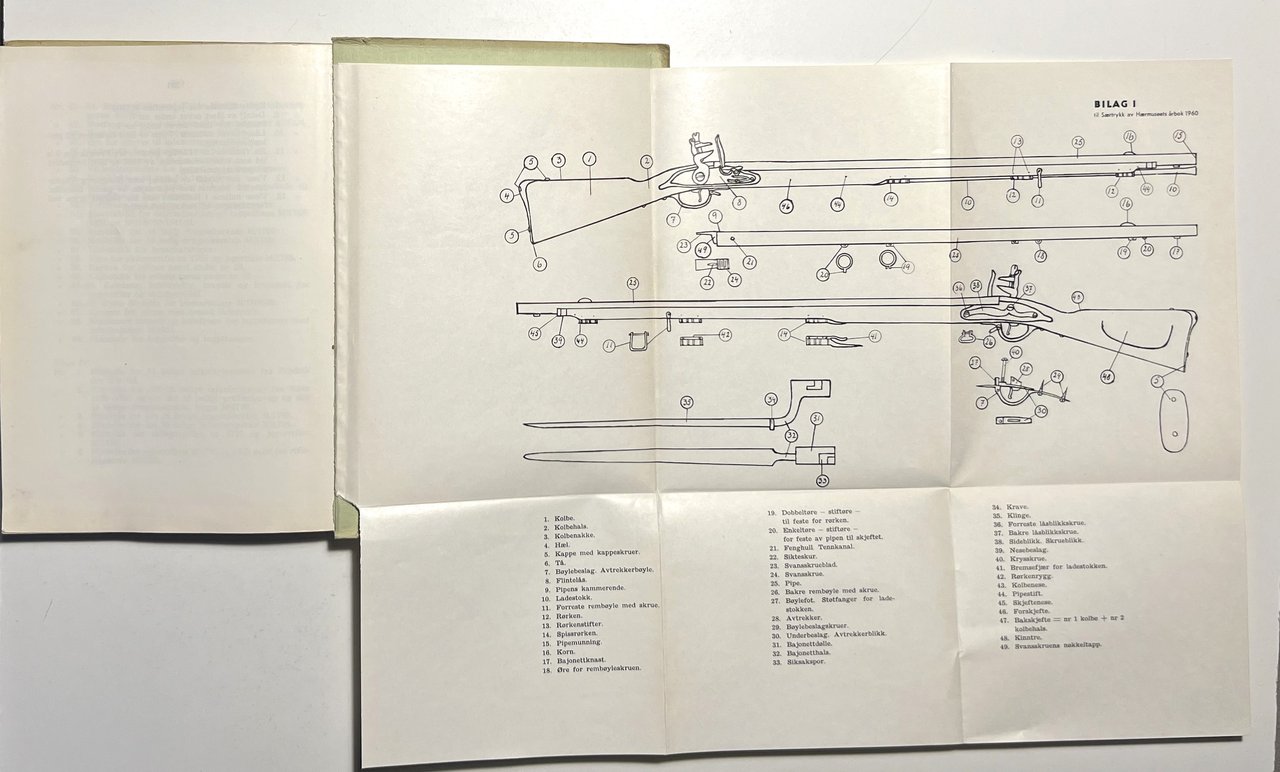 BILAG I
til Særtrykk av Hærmuseets årbok 1960
1. Kolbe.
2. Kolbehals.
3. Kolbenakke.
4. Hæl.
5. Kappe med kappeskruer.
6. Tå.
7. Bøylebeslag. Avtrekkerbøyle.
8. Flintelås.
9. Pipens kammerende.
10. Ladestokk.
11. Forreste rembøyle med skrue.
12. Rørken.
13. Rørkenstifter.
14. Spissrørken.
15. Pipemunning.
16. Korn.
17. Bajonettknast.
18. Øre for rembøyleskruen.
19. Dobbeltøre — stiftøre —
til feste for rørken.
20. Enkeltøre — stiftøre —
for feste av pipen til skjeftet.
21. Fenghull Tennkanal.
22. Sikteskur.
23. Svansskrueblad.
24. Svansskrue.
25. Pipe.
26. Bakre rembøyle med skrue.
27. Bøylefot. Støtfanger for lade-
stokken.
28. Avtrekker.
29. Bøylebeslagskruer.
30. Underbeslag. Avtrekkerblikk.
31. Bajonettdølle.
32. Bajonetthals.
33. Siksakspor.
34. Krave.
35. Klinge.
36. Forreste låsblikkskrue.
37. Bakre låsblikkskrue.
38. Sideblikk. Skrueblikk.
39. Nesebeslag.
40. Krysskrue.
41. Bremsefjær for ladestokken.
42. Rørkenrygg.
43. Kolbenese.
44. Pipestift.
45. Skjeftenese.
46. Forskjefte.
47. Bakskjefte = nr 1 kolbe + nr 2
kolbehals.
48. Kinntre.
49. Svansskruens nakkeltapp.